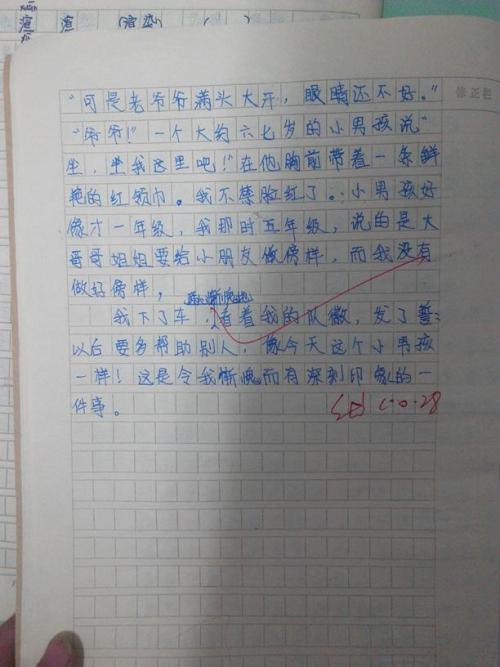 渲 渲 (渲染) ( )
修正栏
“可是老爷爷满头大汗，眼睛还不好。”
“爷爷！”一个大约六七岁的小男孩说“
坐，坐我这里吧！”在他胸前带着一条鲜
艳的红领巾。我不禁脸红了。小男孩好
像才一年级，我那时五年级，说的是大
哥哥姐姐要给小朋友做傍样，而我没有
做好傍样，
我下了车，看着我的队徽，发了誓：
以后要多帮助别人，像今天这个小男孩
一样！这是令我惭愧而有深刻印象的一
件事。